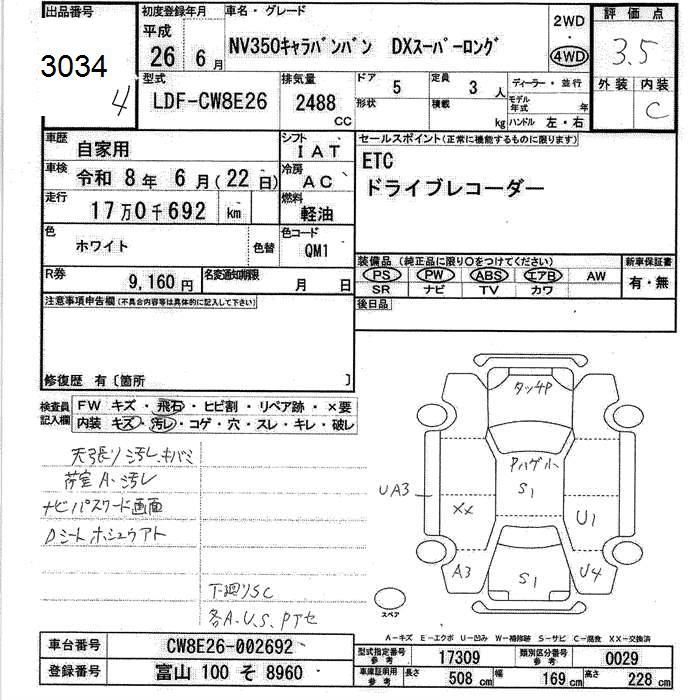 出品番号
3034
4
初度登録年月
平成
26年 6月
車名・グレード
NV350キャラバンバン DXスーパーロング
2WD
・
4WD
評価点
3.5
外装 内装
C
型式
LDF-CW8E26
排気量
2488
CC
ドア 5
定員 3人
ディーラー・並行
形状
積載 kg
モデル年式 年
ハンドル 左・右
車歴
自家用
シフト
IAT
車検
令和 8年 6月(22日)
冷房
AC
走行
17万0千692 km
燃料
軽油
色
ホワイト
色替
色コード
QM1
R券
9,160円
名変通知期限
月 日
セールスポイント(正常に機能するものに限ります)
ETC
ドライブレコーダー
装備品(純正品に限り○をつけてください)
PS PW ABS エアB AW
SR ナビ TV カワ
新車保証書
有・無
後日品
注意事項申告欄(不具合内容等は具体的に記入して下さい)
修復歴 有〔箇所 〕
検査員記入欄
FW キズ・飛石・ヒビ割・リペア跡・×要
内装 キズ・汚レ・コゲ・穴・スレ・キレ・破レ
天張り汚レ、キバミ
荷室A・汚レ
ナビパスワード画面
Dシートホシュウアト
下廻りSC
各A.U.S.Pアセ
タッチP
Pハゲ小
S1
UA3
XX
U1
A3
S1
U4
スペア
A－キズ E－エクボ U－凹み W－補修跡 S－サビ C－腐食 XX－交換済
車台番号 CW8E26-002692
登録番号 富山 100 そ 8960
型式指定番号 参考 17309
類別区分番号 参考 0029
車庫証明用 参考 長さ 508cm 幅 169cm 高さ 228cm